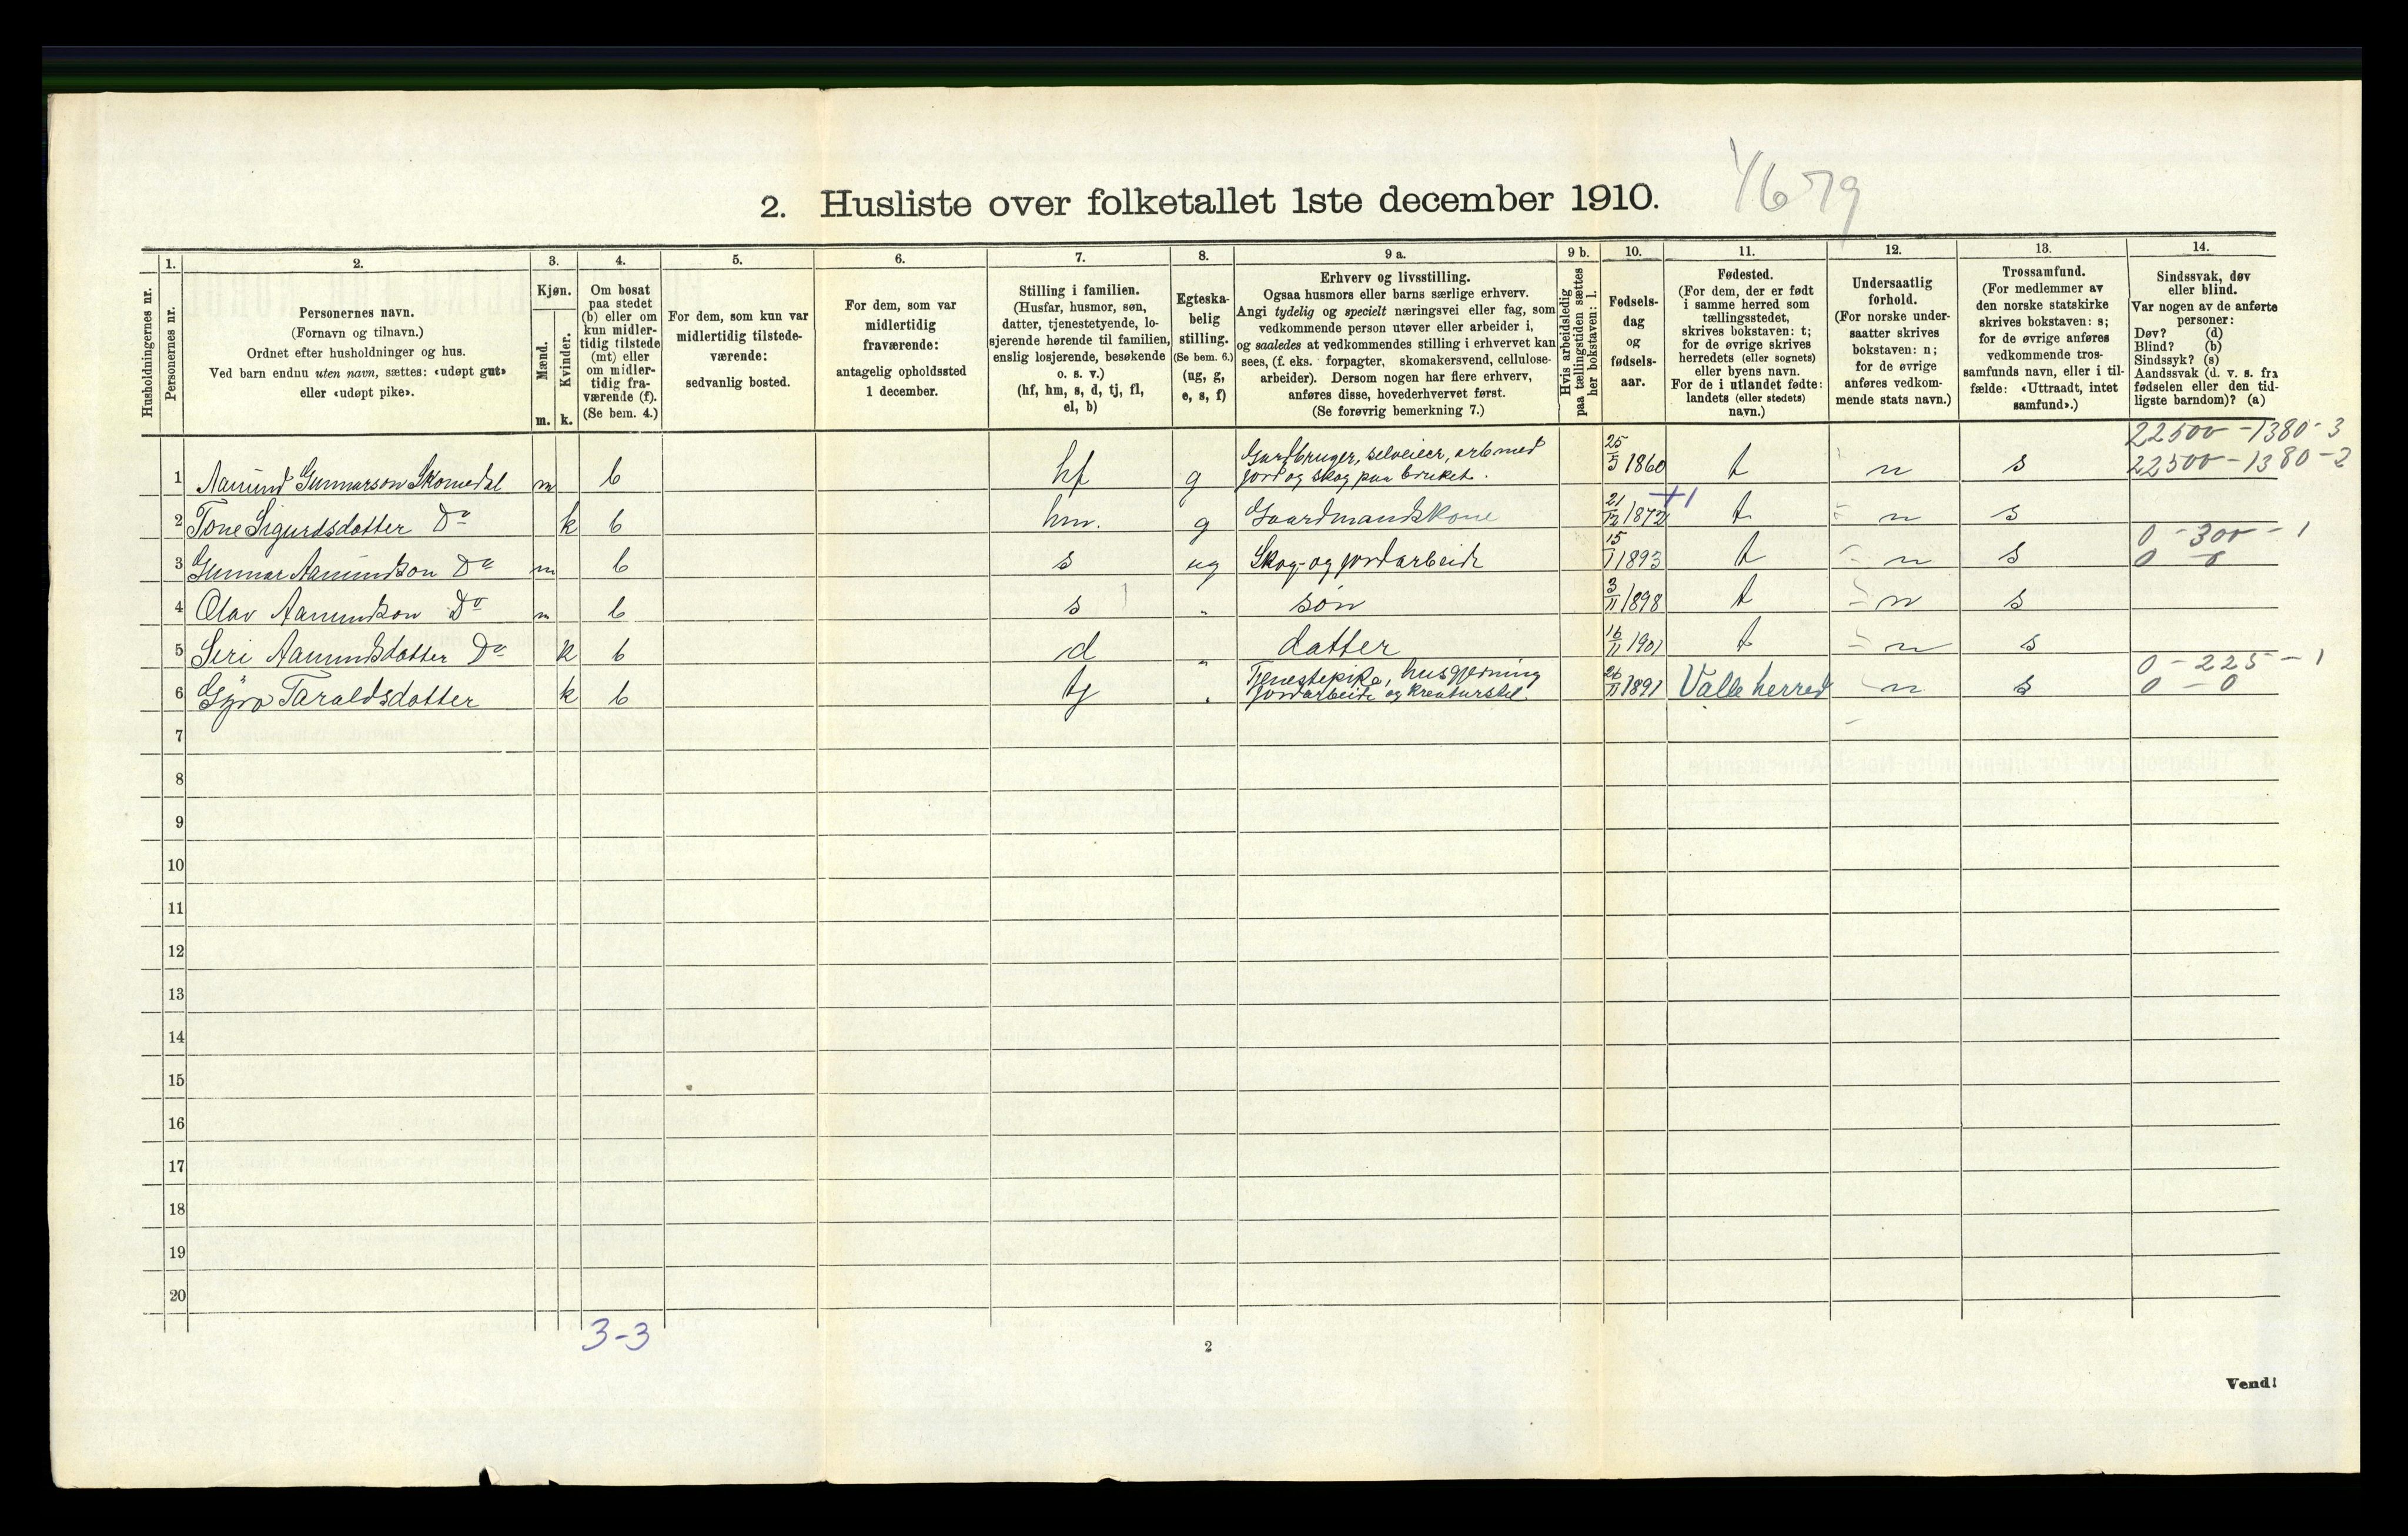 2. Husliste over folketallet 1ste december 1910.
1. 2. 3. 4. 5. 6. 7. 8. 9 a. 9 b. 10. 11. 12. 13. 14.
Husholdningernes nr.
Personernes nr.
Personernes navn.
(Fornavn og tilnavn.)
Ordnet efter husholdninger og hus.
Ved barn endnu uten navn, sættes: «udøpt gut»
eller «udøpt pike».
Kjøn.
Mænd.
Kvinder.
m. k.
Om bosat
paa stedet
(b) eller om
kun midler-
tidig tilstede
(mt) eller
om midler-
tidig fra-
værende (f).
(Se bem. 4.)
For dem, som kun var
midlertidig tilstede-
værende:
sedvanlig bosted.
For dem, som var
midlertidig
fraværende:
antagelig opholdssted
1 december.
Stilling i familien.
(Husfar, husmor, søn,
datter, tjenestetyende, lo-
sjerende hørende til familien,
enslig losjerende, besøkende
o. s. v.)
(hf, hm, s, d, tj, fl,
el, b)
Egteska-
belig
stilling.
(Se bem. 6.)
(ug, g,
e, s, f)
Erhverv og livsstilling.
Ogsaa husmors eller barns særlige erhverv.
Angi tydelig og specielt næringsvei eller fag, som
vedkommende person utøver eller arbeider i,
og saaledes at vedkommendes stilling i erhvervet kan
sees, (f. eks. forpagter, skomakersvend, cellulose-
arbeider). Dersom nogen har flere erhverv,
anføres disse, hovederhvervet først.
(Se forøvrig bemerkning 7.)
Hvis arbeidsledig
paa tællingstiden sættes
her bokstaven: l.
Fødsels-
dag
og
fødsels-
aar.
Fødested.
(For dem, der er født
i samme herred som
tællingsstedet,
skrives bokstaven: t;
for de øvrige skrives
herredets (eller sognets)
eller byens navn.
For de i utlandet fødte:
landets (eller stedets)
navn.)
Undersaatlig
forhold.
(For norske under-
saatter skrives
bokstaven: n;
for de øvrige
anføres vedkom-
mende stats navn.)
Trossamfund.
(For medlemmer av
den norske statskirke
skrives bokstaven: s;
for de øvrige anføres
vedkommende tros-
samfunds navn, eller i til-
fælde: «Uttraadt, intet
samfund».)
Sindssvak, døv
eller blind.
Var nogen av de anførte
personer:
Døv? (d)
Blind? (b)
Sindssyk? (s)
Aandssvak (d. v. s. fra
fødselen eller den tid-
ligste barndom)? (a)
22500 - 1380 - 3
1 Aamund Gunnarson Skomedal m b hf g Gardbruger, selveier, arb med jord og skog paa bruket. 25/5 1860 t n s 22500 - 1380 - 2
2 Tone Sigurdsdatter Do k b hm. g Gaardmandskone 21/12 1872 t n s
0 - 300 - 1
3 Gunnar Aamundson Do m b s ug Skog- og jordarbeide 15/1 1893 t n s 0 - 0
4 Olav Aamundson Do m b s " søn 3/11 1898 t n s
5 Siri Aamundsdatter Do k b d " datter 16/11 1901 t n s
0 - 225 - 1
6 Gyro Taraldsdatter k b tj " Tjenestepike, husgjerning jordarbeide og kreaturstel 26/11 1891 Valle herred n s 0 - 0
7
8
9
10
11
12
13
14
15
16
17
18
19
20
3-3
2
Vend!